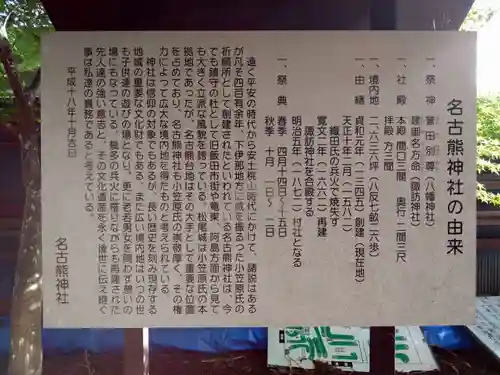 名古熊神社の由来
一、祭神 誉田別尊（八幡神社）
建御名方命（諏訪神社）
一、社殿 本殿 間口三間 奥行二間三尺
拝殿 方三間
一、境内地 二、六三六坪（八反七畝二六歩）
一、由緒 貞和元年（一三四五）創建（現在地）
天正十年二月（一五八二）
織田氏の兵火で焼失す
寛文六年（一六六六）再建
諏訪神社を合祀する
明治五年（一八七二）村社となる
一、祭典 春季 四月十四日〜十五日
秋季 十月 一日〜 二日
遠く平安の時代から安土桃山時代にかけて、諸説はある
が凡そ四百有余年、下伊那地方に威を振るった小笠原氏の
祈願所として創建されたといわれている名古熊神社は、今
でも鎮守の杜として旧飯田市街や竜東、阿島方面から見て
も大きく立派な風格を誇っている。松尾城は小笠原氏の本
拠地であったが、名古熊台地はその大手として重要な位置
を占めており、名古熊神社も小笠原氏の崇敬厚く、その権
力によって広大な境内地を得たものと考えられている。
神社は信仰の対象でもあるが、長い歴史を刻み現存する
地域の重要な文化財でもある。また広い境内地はいつの世
も子供達の遊びの聖域となり、更に老若男女を問わず憩いの
場にもなっている。幾多の兵火に罹りながらも再建された
先人達の強い意志と、その文化遺産を永く後世に伝え継ぐ
事は私達の責務であると考えている。
平成十八年十月吉日
名古熊神社